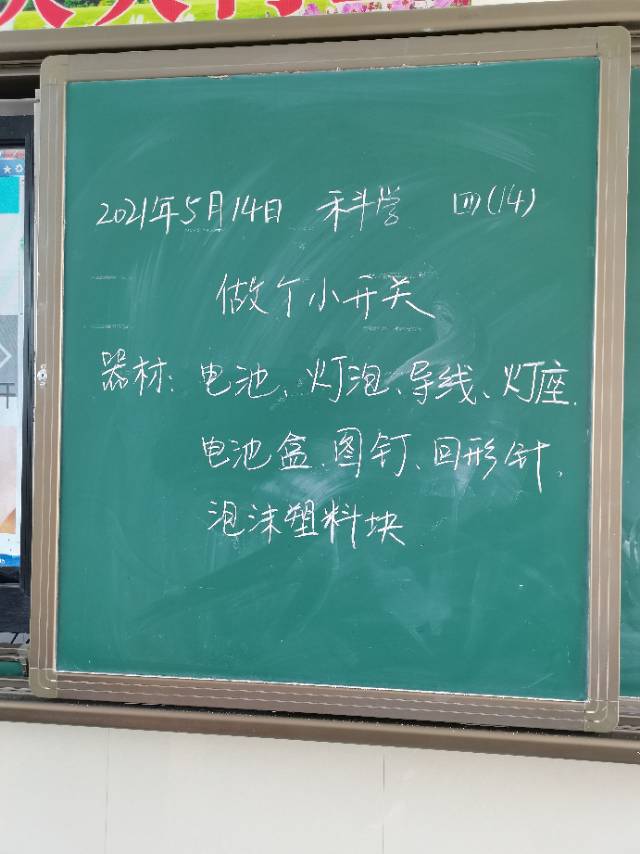 2021年5月14日 科学 四(14)
做个小开关
器材:电池、灯泡、导线、灯座、
电池盒、图钉、回形针、
泡沫塑料块